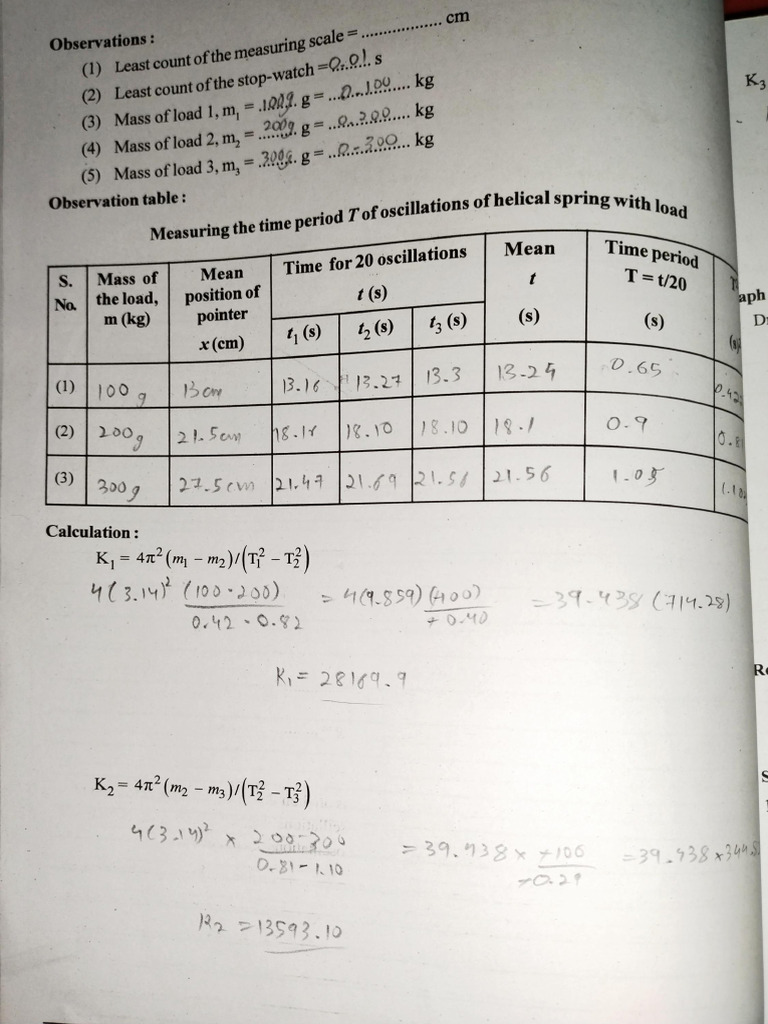 Observations :
(1) Least count of the measuring scale = .................. cm
(2) Least count of the stop-watch = 0.01 s
(3) Mass of load 1, m₁ = 100g g = 0.100 kg
(4) Mass of load 2, m₂ = 200g g = 0.200 kg
(5) Mass of load 3, m₃ = 300g g = 0.300 kg
Observation table :
Measuring the time period T of oscillations of helical spring with load
S. No. Mass of the load, m (kg) Mean position of pointer x (cm) Time for 20 oscillations t (s) Mean t (s) Time period T = t/20 (s)
t₁ (s) t₂ (s) t₃ (s)
(1) 100 g 13cm 13.16 13.27 13.3 13.24 0.65 0.42
(2) 200g 21.5cm 18.10 18.10 18.1 0.9 0.8
(3) 300g 27.5cm 21.47 21.69 21.56 1.10
Calculation :
K₁ = 4π² (m₁ − m₂)/(T₁² − T₂²)
4(3.14)² (100-200) / 0.42 - 0.82 = 4(9.859) / 0.40 = 39.438 (714.28)
K₁ = 28169.9
K₂ = 4π² (m₂ − m₃)/(T₂² − T₃²)
4(3.14)² × 200-300 / 0.81-1.10 = 39.438 × / 0.29 = 39.438×344.
K₂ = 13593.10
K₃
aph